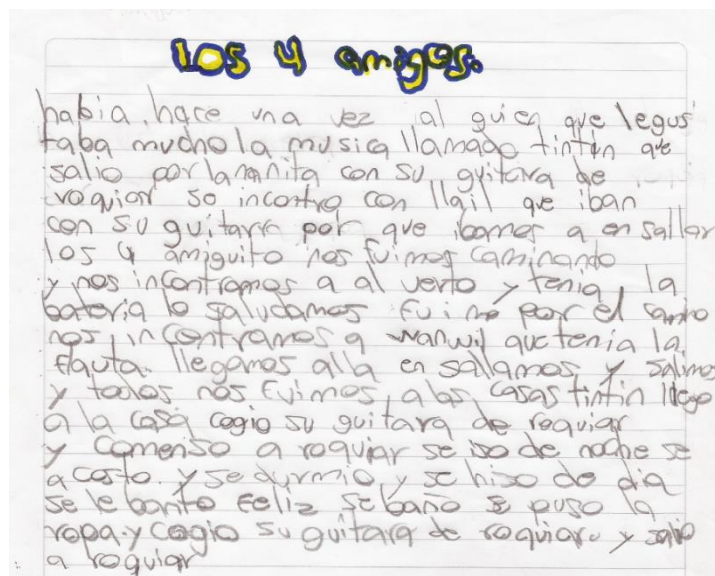 Los 4 amigos.
habia, hace una vez al guien que legus
taba mucho la musica llamado tintin que
salio por lamanita con su guitara de
roquiar se incontro con llail que iban
con su guitarra por que ibamos a en sallar
los 4 amiguito nos fuimos caminando
y nos incontramos a al verto y tenia la
bateria lo saludamos fuimo por el camino
nos incontramos a wanwil que tenia la
flauta. llegamos alla en salamos y salimos
y todos nos fuimos, a las casas tintin llego
a la casa cogio su guitara de roquiar
y comenso a roquiar se iso de noche se
a costo. y se durmio y se hiso de dia
se le banto feliz se baño se puso la
ropa. y cogio su guitara de roquiar. y salio
a roquiar